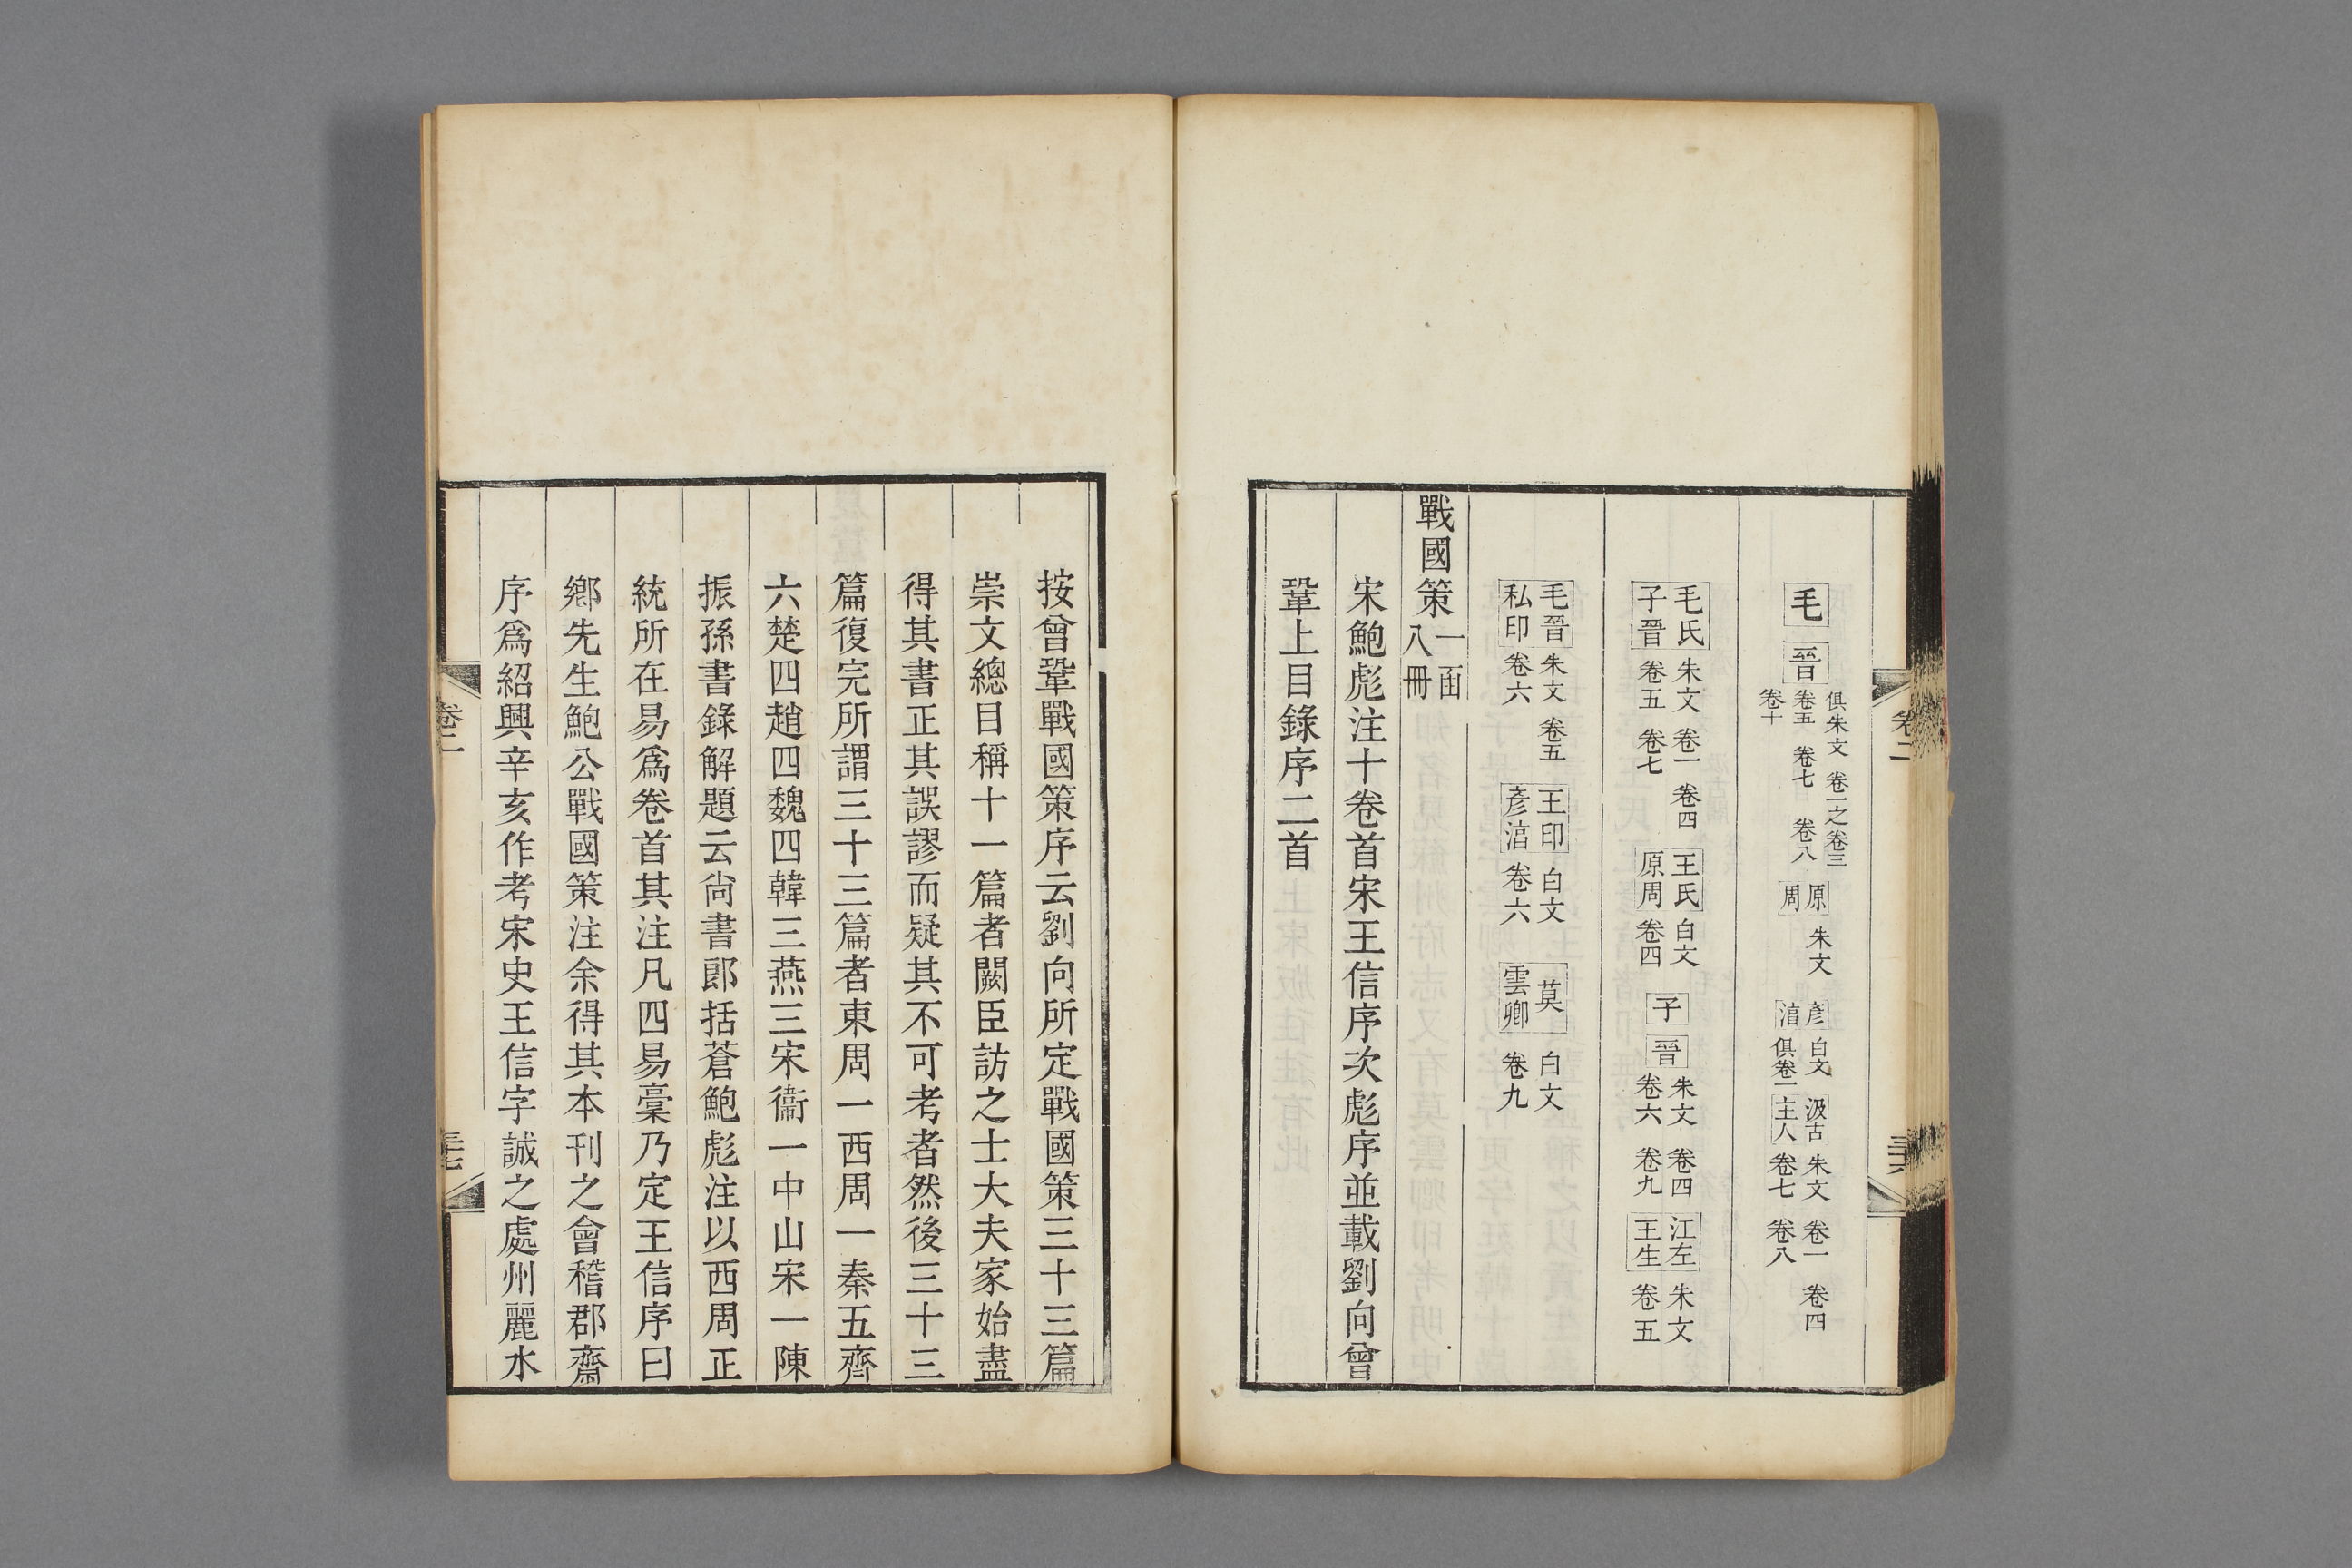 毛 晉 俱朱文 卷一之卷三 卷五 卷七 卷八 卷十 原周 朱文 彥湻 白文 俱卷一 汲古主人 朱文 卷一 卷四 卷七 卷八
毛氏子晉 朱文 卷一 卷四 卷五 卷七 王氏原周 白文 卷四 子 晉 朱文 卷四 卷六 卷九 江左王生 朱文 卷五
毛晉私印 朱文 卷五 卷六 王印彥湻 白文 卷六 莫雲卿 白文 卷九
戰國策 一函八冊
宋鮑彪注十卷首宋王信序次彪序並載劉向曾
鞏上目錄序二首
卷二
按曾鞏戰國策序云劉向所定戰國策三十三篇
崇文總目稱十一篇者闕臣訪之士大夫家始盡
得其書正其誤謬而疑其不可考者然後三十三
篇復完所謂三十三篇者東周一西周一秦五齊
六楚四趙四魏四韓三燕三宋衞一中山宋一陳
振孫書錄解題云尙書郎括蒼鮑彪注以西周正
統所在易爲卷首其注凡四易稾乃定王信序曰
鄉先生鮑公戰國策注余得其本刊之會稽郡齋
序爲紹興辛亥作考宋史王信字誠之處州麗水
卷二
三十七